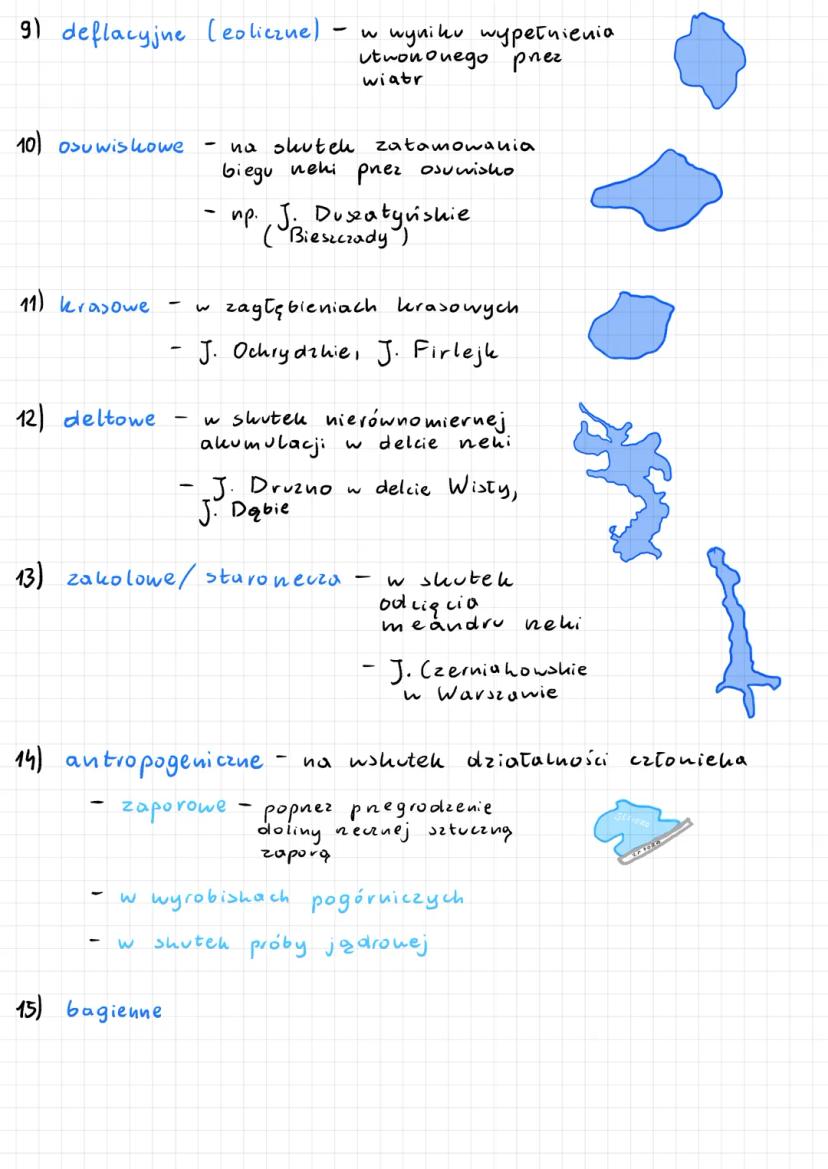 9) deflacyjne (eoliczne) - w wyniku wypełnienia
utworzonego przez
wiatr
10) osuwiskowe - na skutek zatamowania
biegu rzeki przez osuwisko
- np. J. Duszatyńskie
(Bieszczady)
11) krasowe - w zagłębieniach krasowych
- J. Ochrydzkie, J. Firlejk
12) deltowe - w skutek nierównomiernej
akumulacji w delcie rzeki
- J. Druzno w delcie Wisły,
J. Dąbie
13) zakolowe/ starorzecza - w skutek
odcięcia
meandru rzeki
- J. Czerniakowskie
w Warszawie
14) antropogeniczne - na wskutek działalności człowieka
- zaporowe - poprzez przegrodzenie
doliny rzecznej sztuczną
zaporą
JEZIORO
ZAPORA
- w wyrobiskach pogórniczych
- w skutek próby jądrowej
15) bagienne